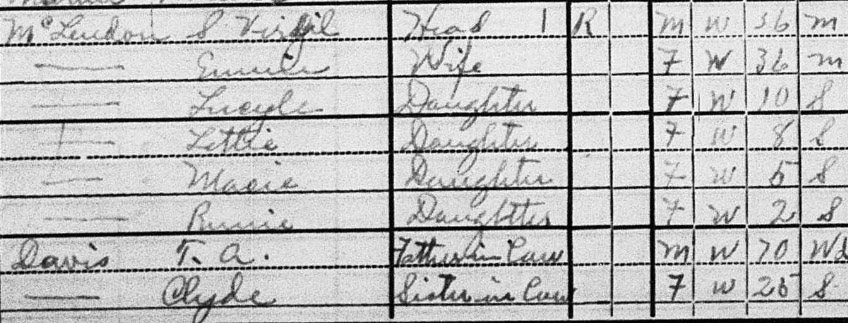 McLendon S Virgil Head 1 R M W 36 M
—— Emmie Wife F W 36 M
—— Lucyle Daughter F W 10 S
—— Lettie Daughter F W 8 S
—— Macie Daughter F W 5 S
—— Daughter F W 2 S
Davis T. A. Father in Law M W 70 Wd
—— Clyde Sister in Law F W 25 S